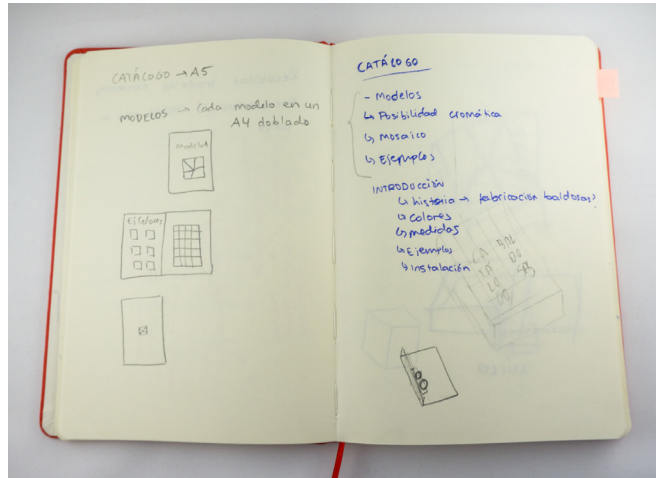 CATÁLOGO → A5
MODELOS → Cada modelo en un
A4 doblado
Modelo A
CATÁLOGO
- Modelos
↳ Posibilidad cromática
↳ Mosaico
↳ Ejemplos
INTRODUCCIÓN
↳ historia → fabricación baldosas?
↳ Colores
↳ medidas
↳ Ejemplos
↳ instalación
CA
TÁ
LO
GO
BAL
DO
SAS